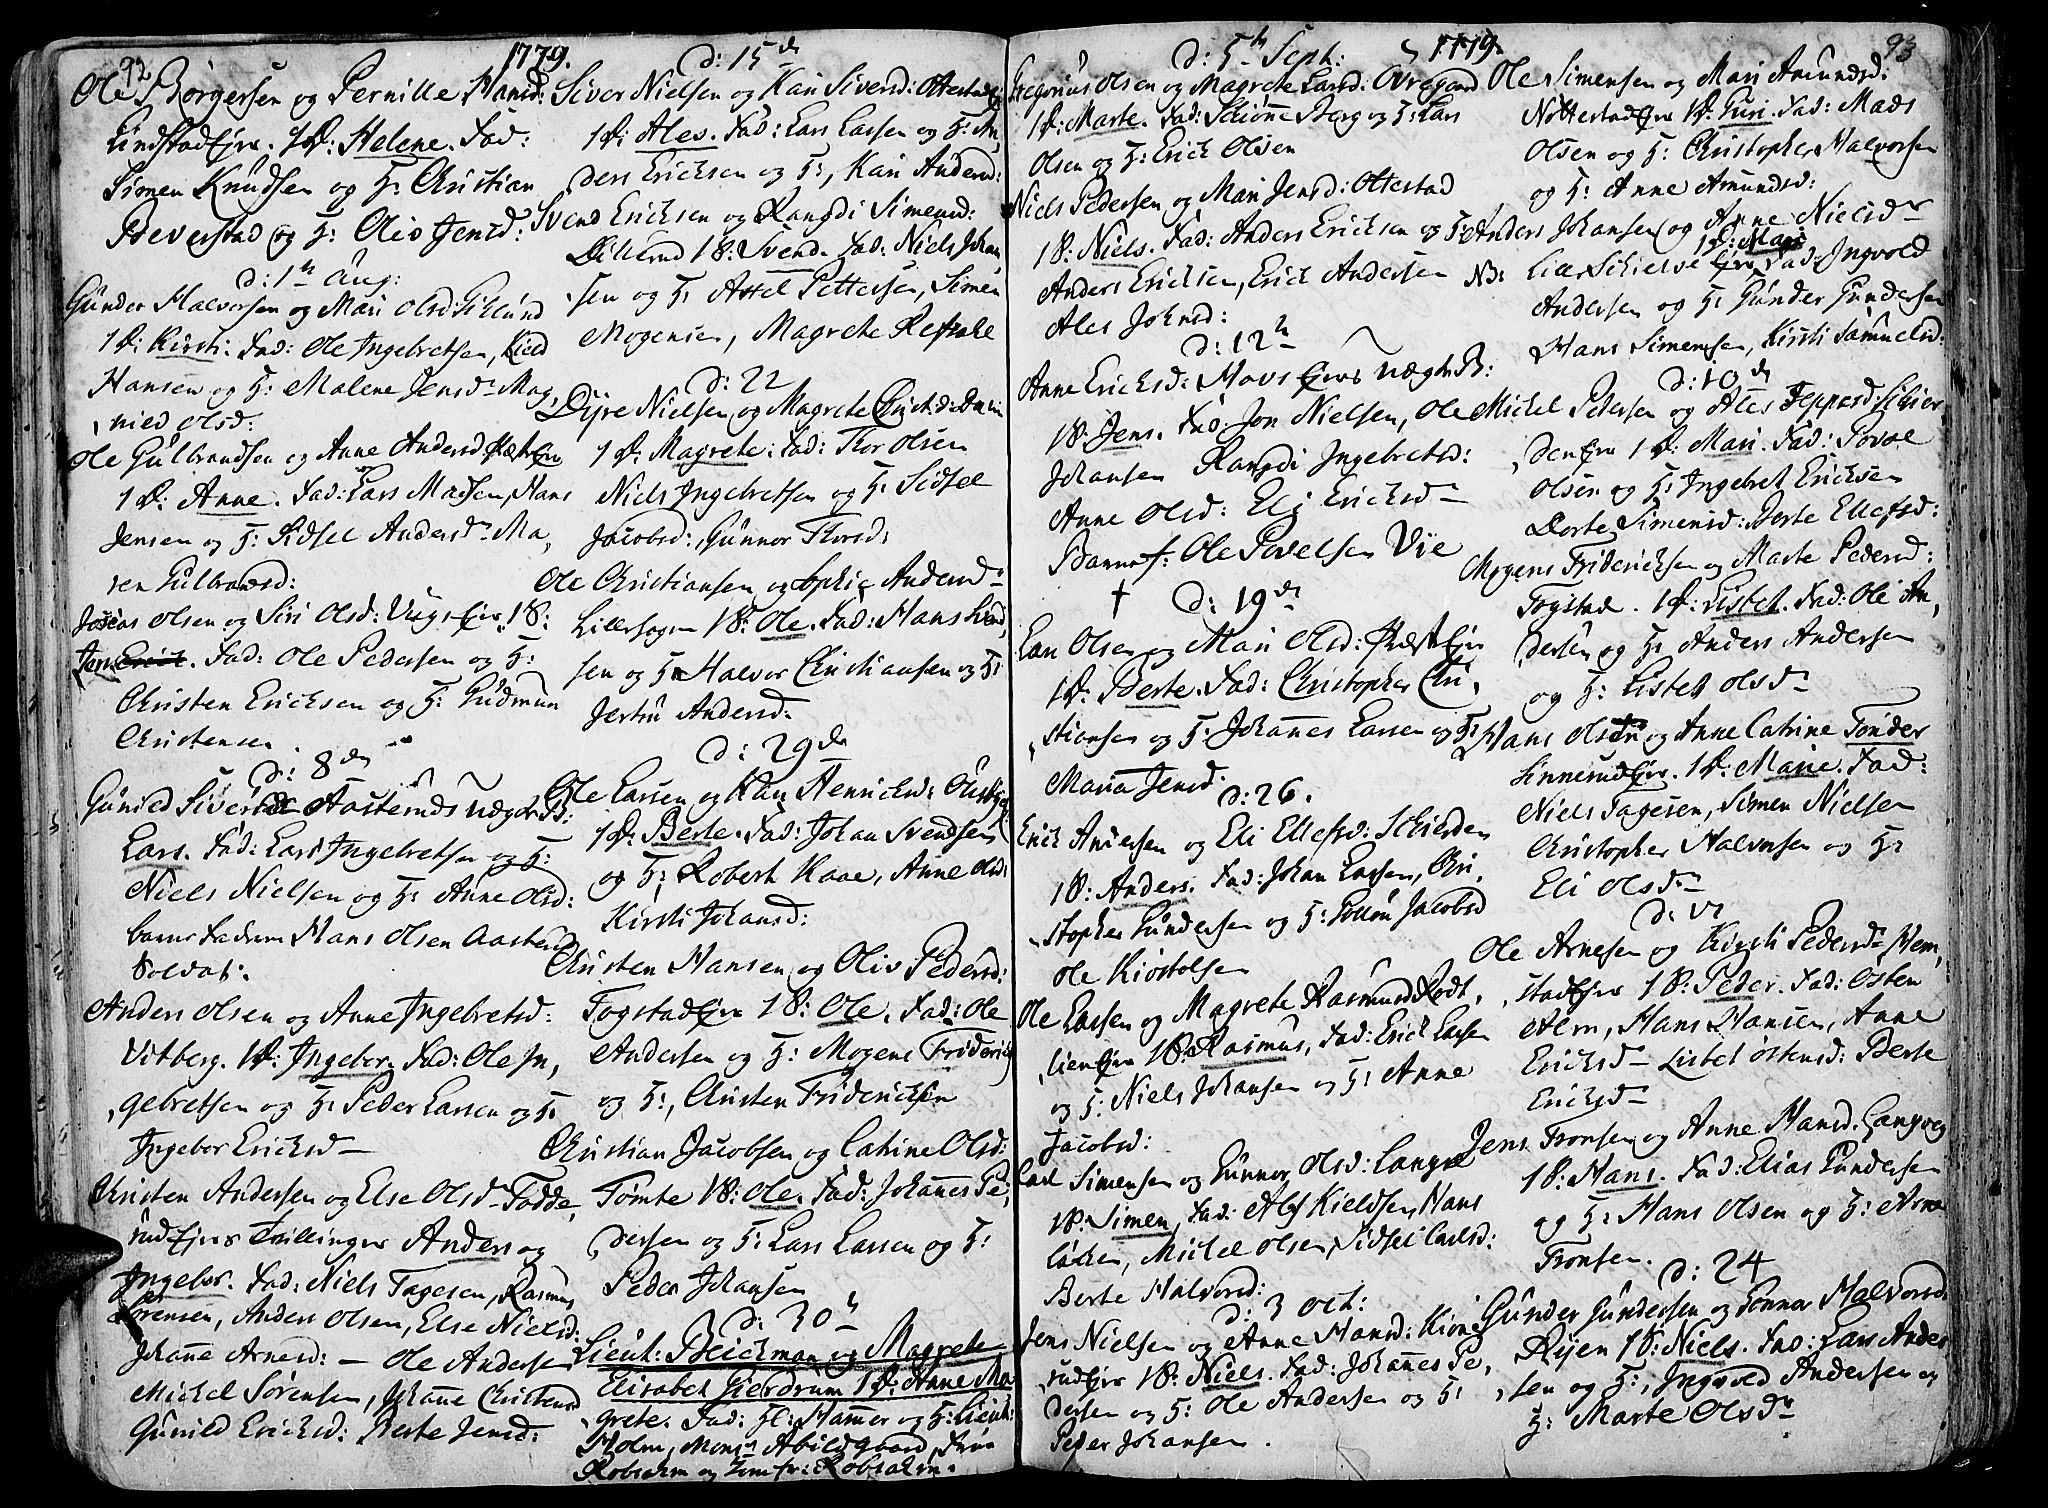 92
1779.
Ole Børgersen og Pernille Hansd:
Lindstadeje. 1 P: Helene. Fad:
Simen Knudsen og H: Christian
Beverstad og H: Oliv Jensd:
d: 1te Aug:
Gunder Halvorsen og Mari Olsd:
1 P: Kirsti. Fad: Ole Ingebretsen,
Hansen og H: Malene Jensdr Mag,
nild Olsd:
Ole Gulbrandsen og Anne Andersd
1 P: Anne. Fad: Lars Madsen, Hans
Jensen og H: Sidsel Andersdr Ma,
ren Gulbrandsd:
Olsen og Siri Olsd: 1 B:
Jens. Fad: Ole Pedersen og H:
Christen Ericksen og H: Gudmun
Christensen
d: 8de
Gunild Siversdr
Lars. Fad: Lars Ingebretsen og H:
Niels Nielsen og H: Anne Olsd:
Hans Olsen
Soldat.
Anders Olsen og Anne Ingebretsd:
Vitberg. 1 P: Ingebor. Fad: Ole In,
gebretsen og H: Peder Larsen og H:
Ingebor Ericksd
Christen Andersen og Else Olsd Fodde,
rudejer Tvillinger Anders og
Ingebor. Fad: Niels Tagesen, Rasmus
Sørensen, Anders Olsen, Else Nielsd:
Johanne Arnesd: — Ole Andersen
Michel Sørensen, Johanne Christensd
Gunild Ericksd: Berte Jensd:
d: 15de
Siver Nielsen og Kari Siversd: Ottestad
1 P: Ales. Fad: Lars Larsen og H: An,
ders Ericksen og H:, Kari Andersd:
Svend Ericksen og Rangdi Simensd:
1 B: Svend. Fad: Niels Johan
sen og H: Axsel Pettersen, Simen
Mogensen, Magrete
d: 22
Dyre Nielsen og Magrete
1 P: Magrete: Fad: Tor Olsen
Niels Ingebretsen og H: Sidsel
Jacobsd:, Gunnor Torsd:
Ole Christiansen og Sophie Andersd
1 B: Ole. Fad: Hans
sen og H: Halvor Christiansen og H:
Andersd:
d: 29de
Ole Larsen og Kari Henricksd:
1 P: Berte. Fad: Johan Svendsen
og H: Robert Kaae, Anne Olsd:
Kirsti Johansd:
Christen Hansen og Oliv Pedersd:
Fogstadejer 1 B: Ole. Fad: Ole
Andersen og H: Mogens Friderick
og H:, Christen Fridericksen
Christian Jacobsen og Catrine Olsd:
Tømte 1 B: Ole. Fad: Johannes Pe,
dersen og H: Lars Larsen og H:
Peder Johansen
d: 30te
Lieut: Bleichman og Magrete
Elisabet Gierdrum 1 P: Anne Ma
grete. Fad: Hammer og H: Lieut:
Holm, Abildgaard,
Robsahm og Robsahm.
d: 5te Sept:
1779.
93
Gregorius Olsen og Magrete Larsd: Ovregaard
1 P: Marte. Fad: Berg og H: Lars
Olsen og H: Erick Olsen
Niels Pedersen og Mari Jensd: Ottestad
1 B: Niels. Fad: Anders Ericksen og H:
Anders Ericksen, Erick Andersen
Ales Johnsd:
d: 12te
Anne Ericksd:
1 B: Jens. Fad Jon Nielsen, Ole
Johansen Rangdi Ingebretsd:
Anne Olsd: Eli Ericksd
Ole Povelsen Vie
d: 19de
Lars Olsen og Mari Olsd:
1 P: Berte. Fad: Christopher Chri,
stiansen og H: Johannes Larsen og H:
Maria Jensd:
d: 26.
Erick Andersen og Eli Ellefsd:
1 B: Anders. Fad: Johan Larsen, Chri,
stopher Gundersen og H: Jacobsd
Ole Kiøstolsen
Ole Larsen og Magrete Rasmusd
1 B: Rasmus, Fad: Erick Larsen
og H: Niels Johansen og H: Anne
Jacobsd:
Carl Simensen og Gunnor Olsd:
1 B: Simen, Fad: Alf Kieldsen, Hans
Michel Olsen, Sidsel Carlsd:
Berte Halvorsd:
d: 3 Oct:
Jens Nielsen og Anne Hansd:
rudejer 1 B: Niels. Fad: Johannes Pe,
dersen og H: Ole Andersen og H:
Peder Johansen.
Ole Simensen og Mari Amundsd:
Nottestadejer 1 P: Guri. Fad: Mads
Olsen og H: Christopher Halvorsen
og H: Anne Amundsd:
Anders Johansen og Anne Nielsdr
1 P: Mari
NB: Fad: Ingvold
Andersen og H: Gunder Gundersen
Hans Simensen, Kirsti Samuelsd:
d: 10de
Michel Pedersen og Ales Jeppesd:
1 P: Mari. Fad: Povel
Olsen og H: Ingebret Ericksen
Dorte Simensd: Berte Ellefsd:
Mogens Fridericksen og Marte Pedersd:
Fogstad. 1 P: Lisbet. Fad: Ole An,
dersen og H: Anders Andersen
og H: Lisbet Olsd
Hans Olsen og Anne Catrine Tønder
Linnerudejer. 1 P: Marie. Fad:
Niels Tagesen, Simen Nielsen
Christopher Halvorsen og H:
Eli Olsd
Ole Arnesen og Kirsti Pedersd Hem,
stadejer 1 B: Peder. Fad: Osten
Alm, Hans Hansen, Anne
Ericksd Lisbet Østensd: Berte
Ericksd
Jens Tronsen og Anne Hansd.
1 B: Hans. Fad: Elias Gundersen
og H: Hans Olsen og H: Arne
Tronsen.
d: 24
Gunder Gundersen og Gonnor Halvorsd
1 B: Niels. Fad: Lars Ander
sen og H:, Ingvold Andersen og
H: Marte Olsdr